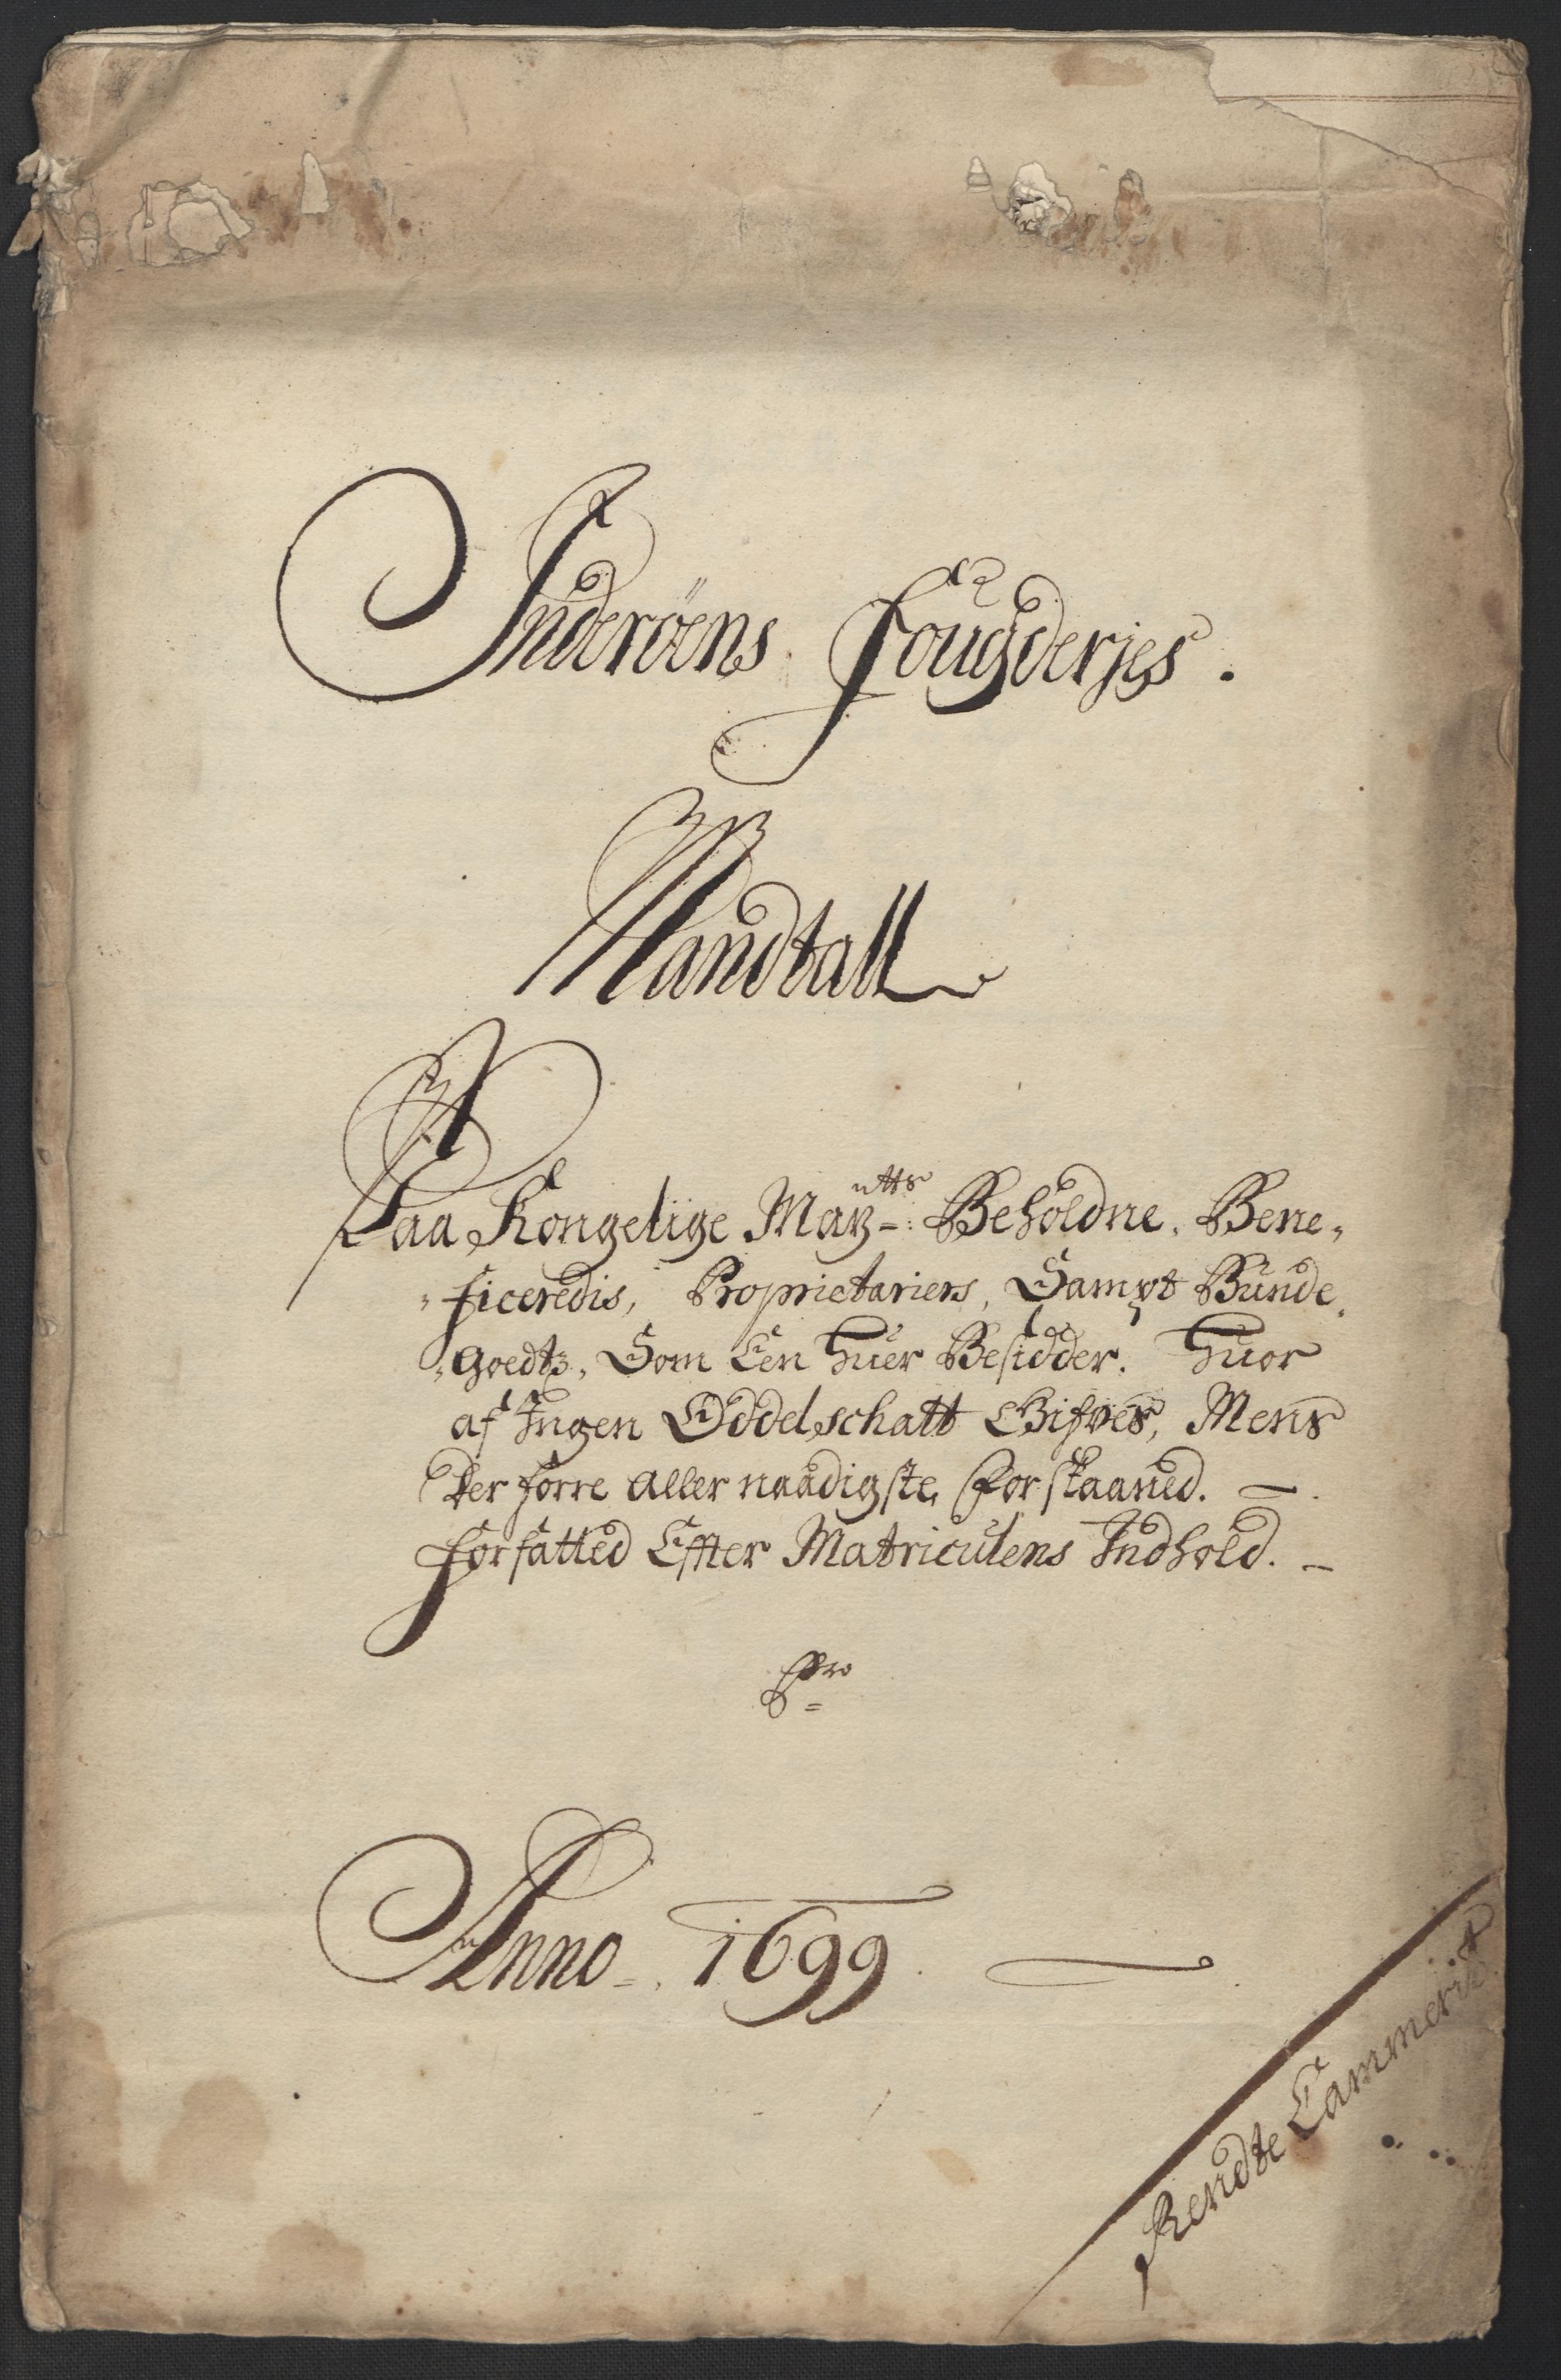 Inderöens Fougderjes.
Mandtall
Paa Kongelige May-: Beholdne, Bene„
utts
„ficeredis, Proprietariers, Sampt Bunde„
„goedtz, Som Een huer Besidder. huor
af Ingen Oddelschatt Gifves, Mens
der forre aller naadigste forskaaned. —
forfatted Effter Matriculens Indhold. —
Pro
Anno 1699
Rendte Cammerit